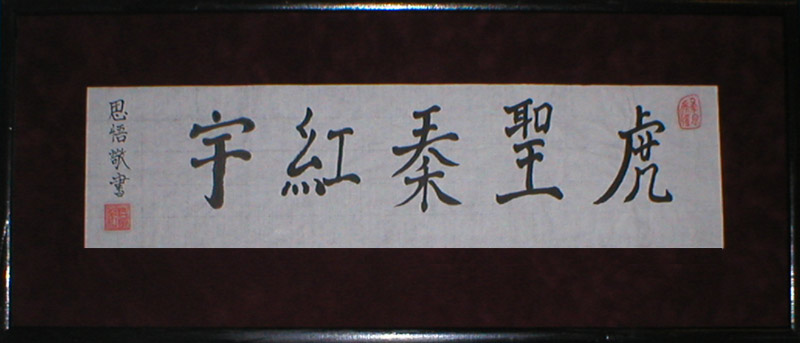 虎聖秦紅宇
思悟敬書